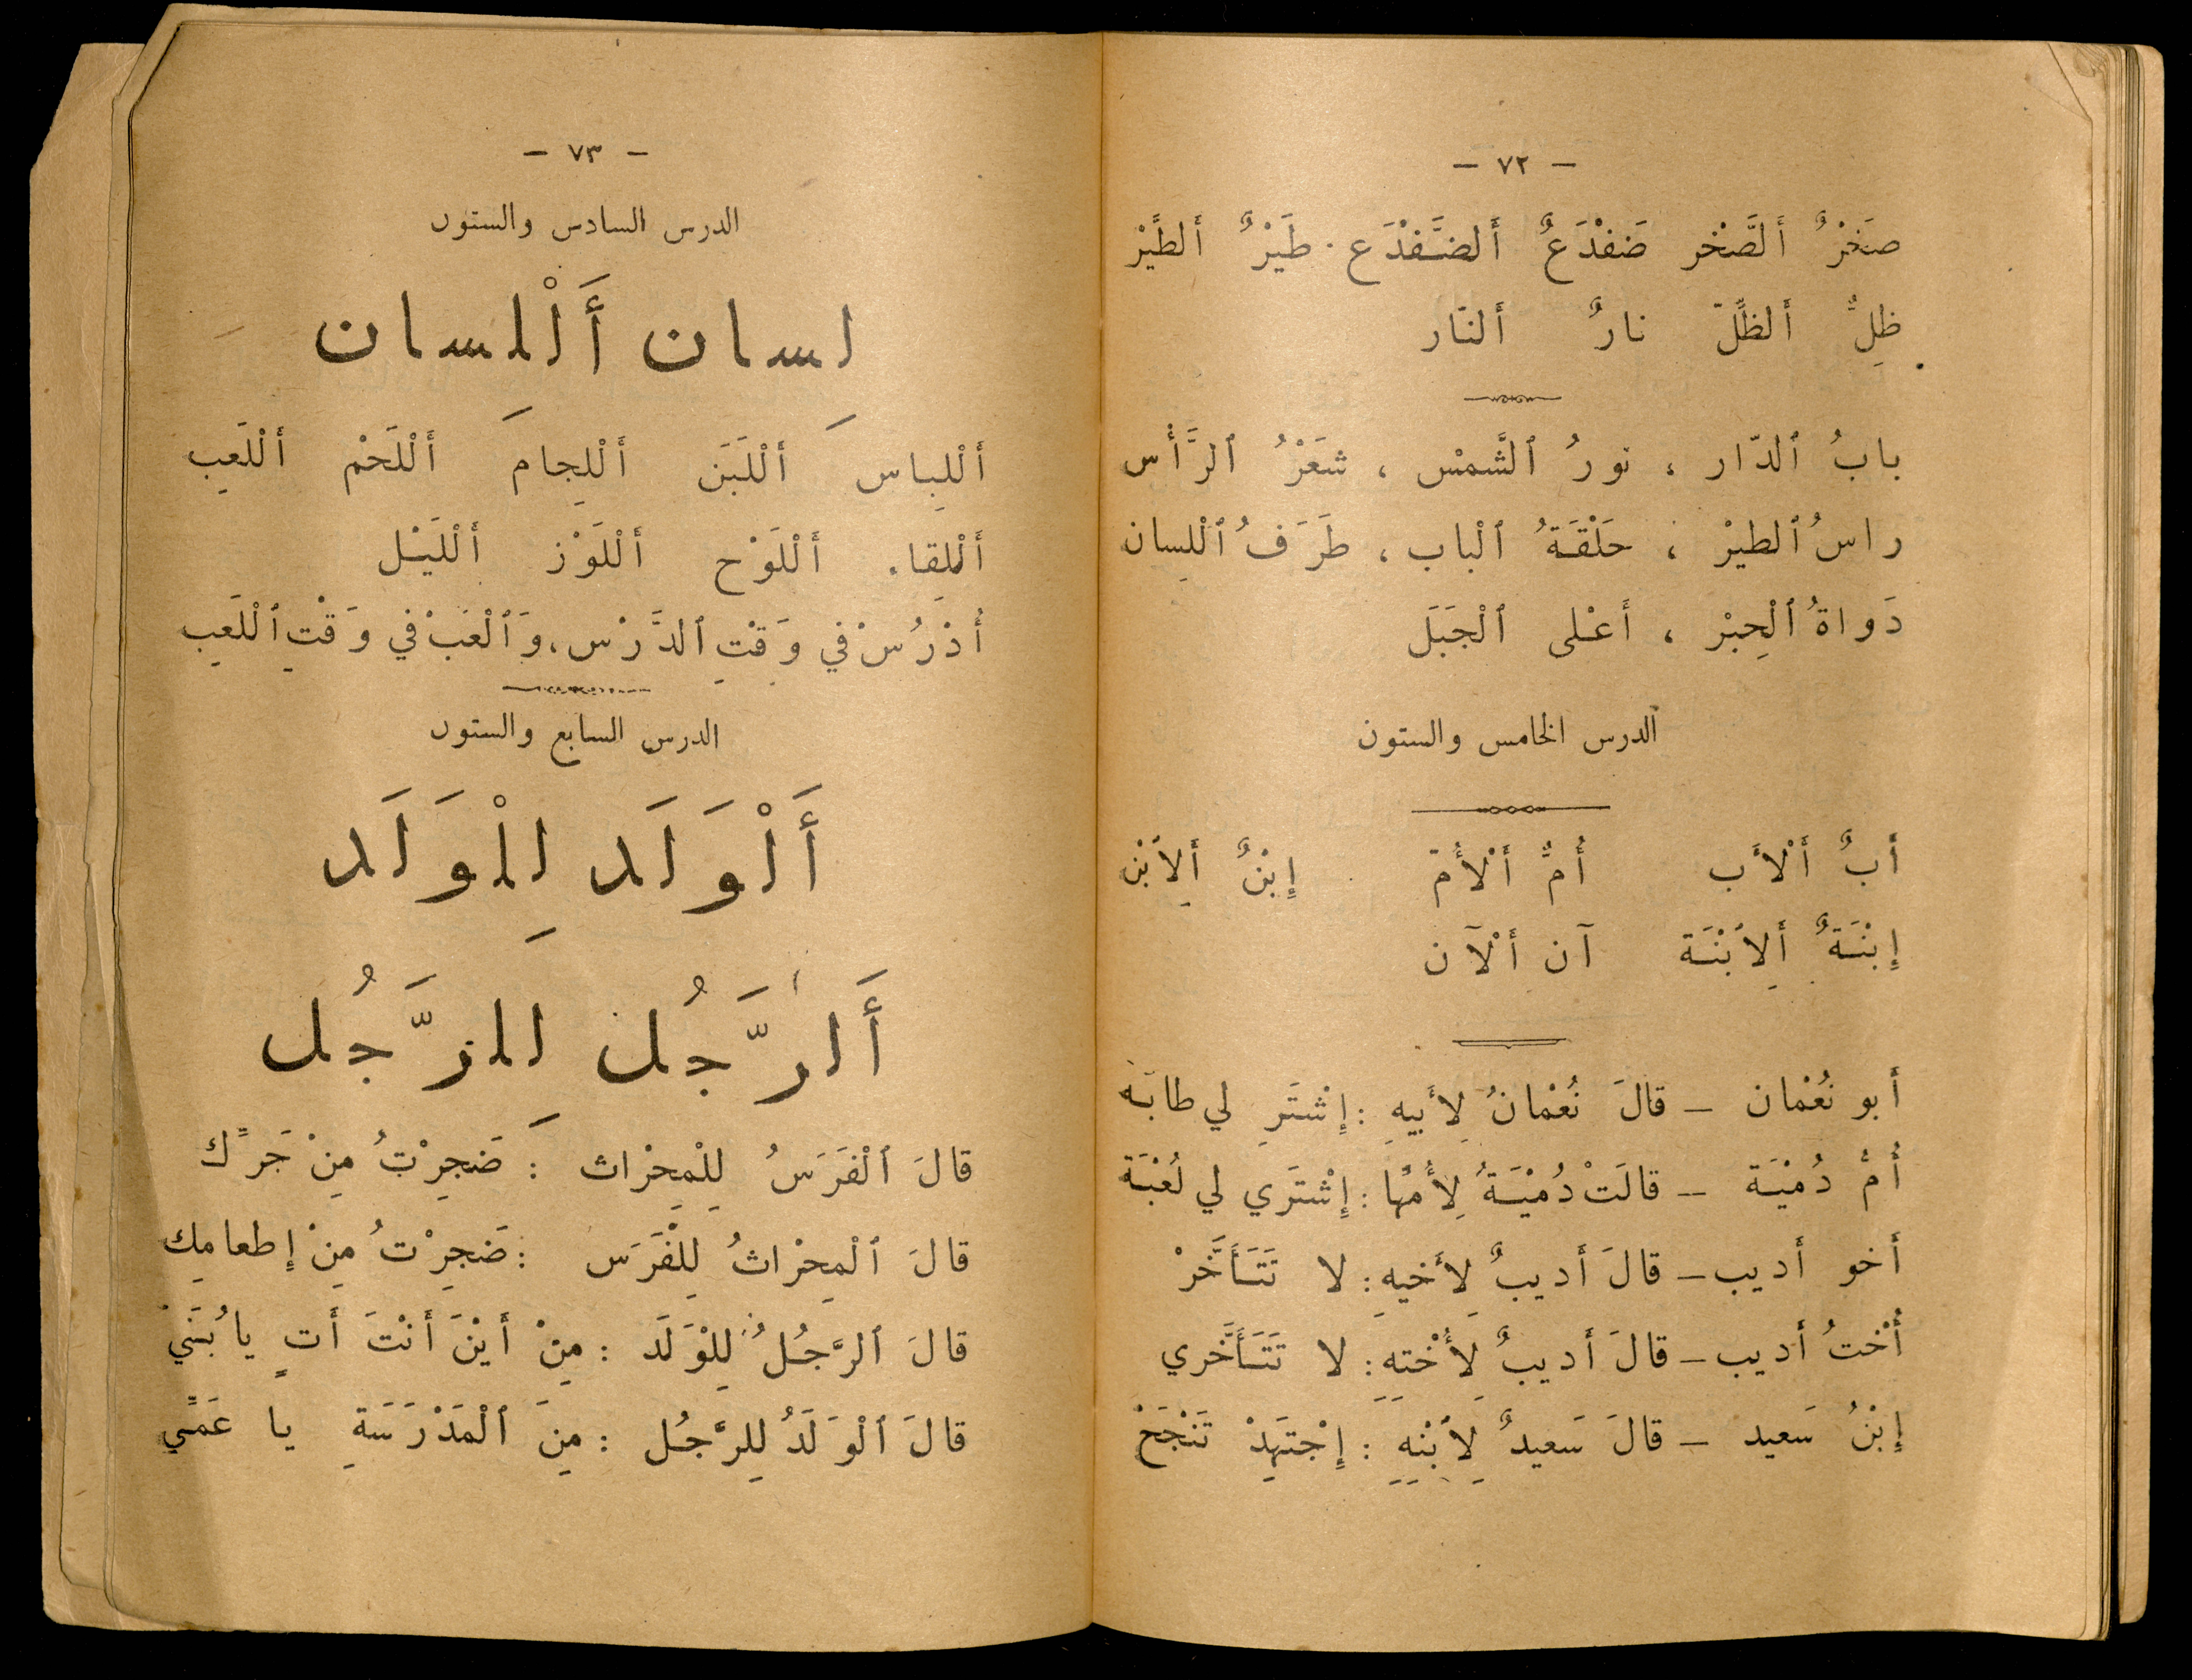 — ٧٢ —
صَخْرٌ أَلصَّخْر ضَفْدَعٌ أَلضَّفْدَع طَيْرٌ أَلطَّيْر
ظِلٌّ أَلظِّلّ نارٌ أَلنّار
بابُ ٱلدّار ، نورُ ٱلشَّمْس ، شَعْرُ ٱلرَّأْس
راسُ ٱلطيْر ، حَلْقَةُ ٱلْباب ، طَرَفُ ٱلْلِسان
دَواةُ ٱلْحِبْر ، أَعْلى ٱلْجَبَل
الدرس الخامس والستون
أَبٌ أَلْأَب أُمٌّ أَلْأُمّ إِبْنٌ أَلِٱبْن
إِبْنَةٌ أَلِٱبْنَة آن أَلْآن
أَبو نُعْمان — قالَ نُعْمانُ لِأَبيهِ : إِشْتَرِ لي طابَة
أُمُّ دُمْيَة — قالَتْ دُمْيَةُ لِأُمِّها : إِشْتَري لي لُعْبَة
أَخو أَديب — قالَ أَديبٌ لِأَخيهِ : لا تَتَأَخَّرْ
أُخْتُ أَديب — قالَ أَديبٌ لِأُخْتِهِ : لا تَتَأَخَّري
إِبْنُ سَعيد — قالَ سَعيدٌ لِٱبْنِهِ : إِجْتَهِدْ تَنْجَحْ
— ٧٣ —
الدرس السادس والستون
لسان أَلْلسان
أَلْلِباس أَلْلَبَن أَلْلِجام أَلْلَحْم أَلْلَعِب
أَلْلِقاء أَلْلَوْح أَلْلَوْز أَلْلَيْل
أُدْرُسْ في وَقْتِ ٱلدَّرْس ، وَٱلْعَبْ في وَقْتِ ٱلْلَعِب
الدرس السابع والستون
أَلْوَلَد لِلْوَلَد
أَلرَّجُل لِلرَّجُل
قالَ ٱلْفَرَسُ لِلْمِحْراث : ضَجِرْتُ مِنْ جَرِّك
قالَ ٱلْمِحْراثُ لِلْفَرَس : ضَجِرْتُ مِنْ إِطعامِك
قالَ ٱلرَّجُلُ لِلْوَلَد : مِنْ أَيْنَ أَنْتَ أَتٍ يا بُنَيّ
قالَ ٱلْوَلَدُ لِلرَّجُل : مِنَ ٱلْمَدْرَسَةِ يا عَمّي